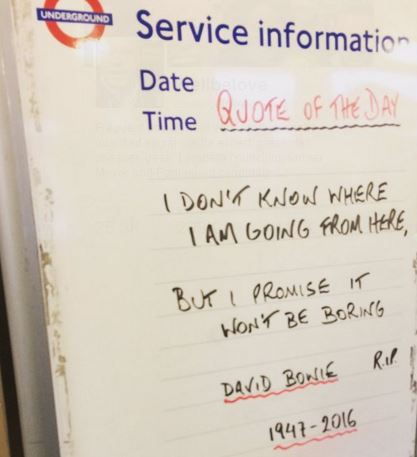 UNDERGROUND
Service information
Date
Time QUOTE OF THE DAY
I DON'T KNOW WHERE
I AM GOING FROM HERE,
BUT I PROMISE IT
WON'T BE BORING
DAVID BOWIE R.I.P.
1947-2016